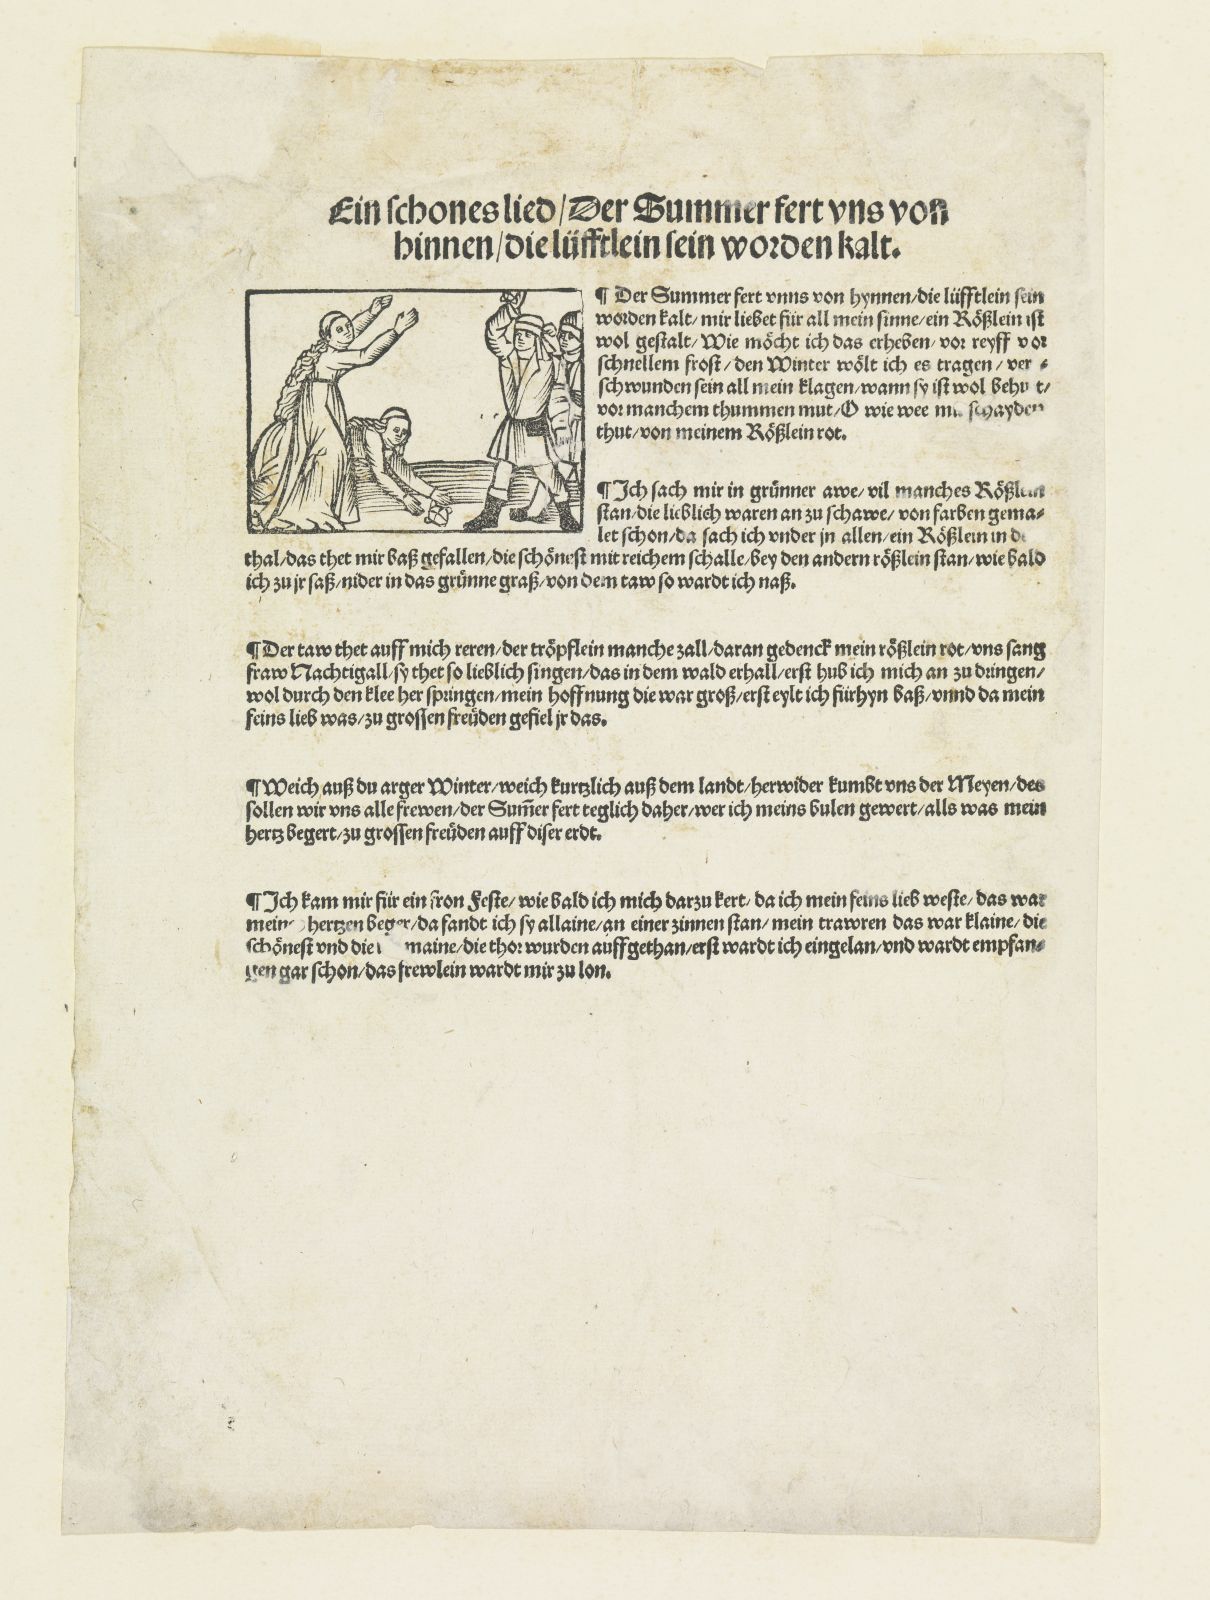 Ein schones lied/Der Summer fert vns von
hinnen/die lüfftlein sein worden kalt.
¶ Der Summer fert vnns von hynnen/die lüfftlein sein
worden kalt/mir liebet für all mein sinne/ein Rößlein ist
wol gestalt/Wie möcht ich das erheben/vor reyff vor
schnellem frost/den Winter wölt ich es tragen/ver⸗
schwunden sein all mein klagen/wann sy ist wol behut/
vor manchem thummen mut/O wie wee schayden
thut/von meinem Rößlein rot.
¶ Ich sach mir in grünner awe/vil manches Rößlein
stan/die lieblich waren an zu schawe/von farben gema⸗
let schon/da sach ich vnder jn allen/ein Rößlein in
thal/das thet mir baß gefallen/die schönest mit reichem schalle/bey den andern rößlein stan/wie bald
ich zu jr saß/nider in das grünne graß/von dem taw so wardt ich naß.
¶ Der taw thet auff mich reren/der tröpflein manche zall/daran gedenck mein rößlein rot/vns sang
fraw Nachtigall/sy thet so lieblich singen/das in dem wald erhall/erst hub ich mich an zu dringen/
wol durch den klee her springen/mein hoffnung die war groß/erst eylt ich fürhyn baß/vnnd da mein
feins lieb was/zu grossen freüden gefiel jr das.
¶ Weich auß du arger Winter/weich kurtzlich auß dem landt/herwider kumbt vns der Meyen/des
sollen wir vns alle frewen/der Sum̃er fert teglich daher/wer ich meins bulen gewert/alls was mein
hertz begert/zu grossen freüden auff diser erdt.
¶ Ich kam mir für ein fron Feste/wie bald ich mich darzu kert/da ich mein feins lieb weste/das war
hertzen beger/da fandt ich sy allaine/an einer zinnen stan/mein trawren das war klaine/die
schönest vnd die maine/die thor wurden auffgethan/erst wardt ich eingelan/vnd wardt empfan⸗
gen gar schon/das frewlein wardt mir zu lon.